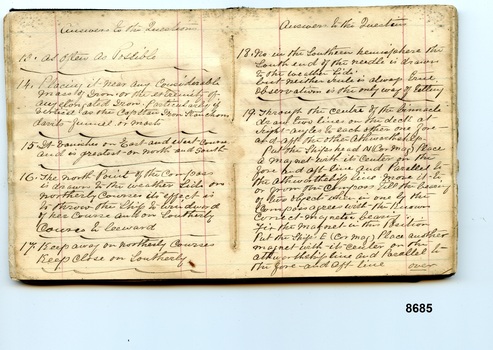 Answers to the Question
13. As often as Possible
14. Placing it near any Considerable
mass of Iron or the extremity of
any elongated Iron. particularly if
vertical as the Capstan Iron Stanchion
davit Funnel or mast
15. It vanishes on East and West Courses
and is greatest on north and South
16. The north Point of the Compass
is drawn to the weather Side on
northerly Courses its effect is
to throw the Ship to windward
of her Course and on Southerly
Courses to leeward
17. Keep away on northerly Courses
Keep Close on Southerly
Answers to the Question
18. No in the Southern hemisphere the
South end of the needle is drawn
to the weather Side.
but neither rule is always true.
Observation is the only way of telling
19. Through the centre of the Binnacle
draw two lines on the deck at
right angles to each other one fore
and aft the other Athwartships.
Put the Ships head N (Cor mag) Place
a magnet with its Center on the
fore and aft line and Parallel to
the Athwartship line move it to
or from the Compass till the bearing
of two objects when in one by the
Compass agrees with the Known
Correct magnetic bearing
Fix the magnet in this Position
Put the Ship E (Cor mag) Place another
magnet with its Center on the
Athwartship line and Parallel to
the fore and aft line over
8685